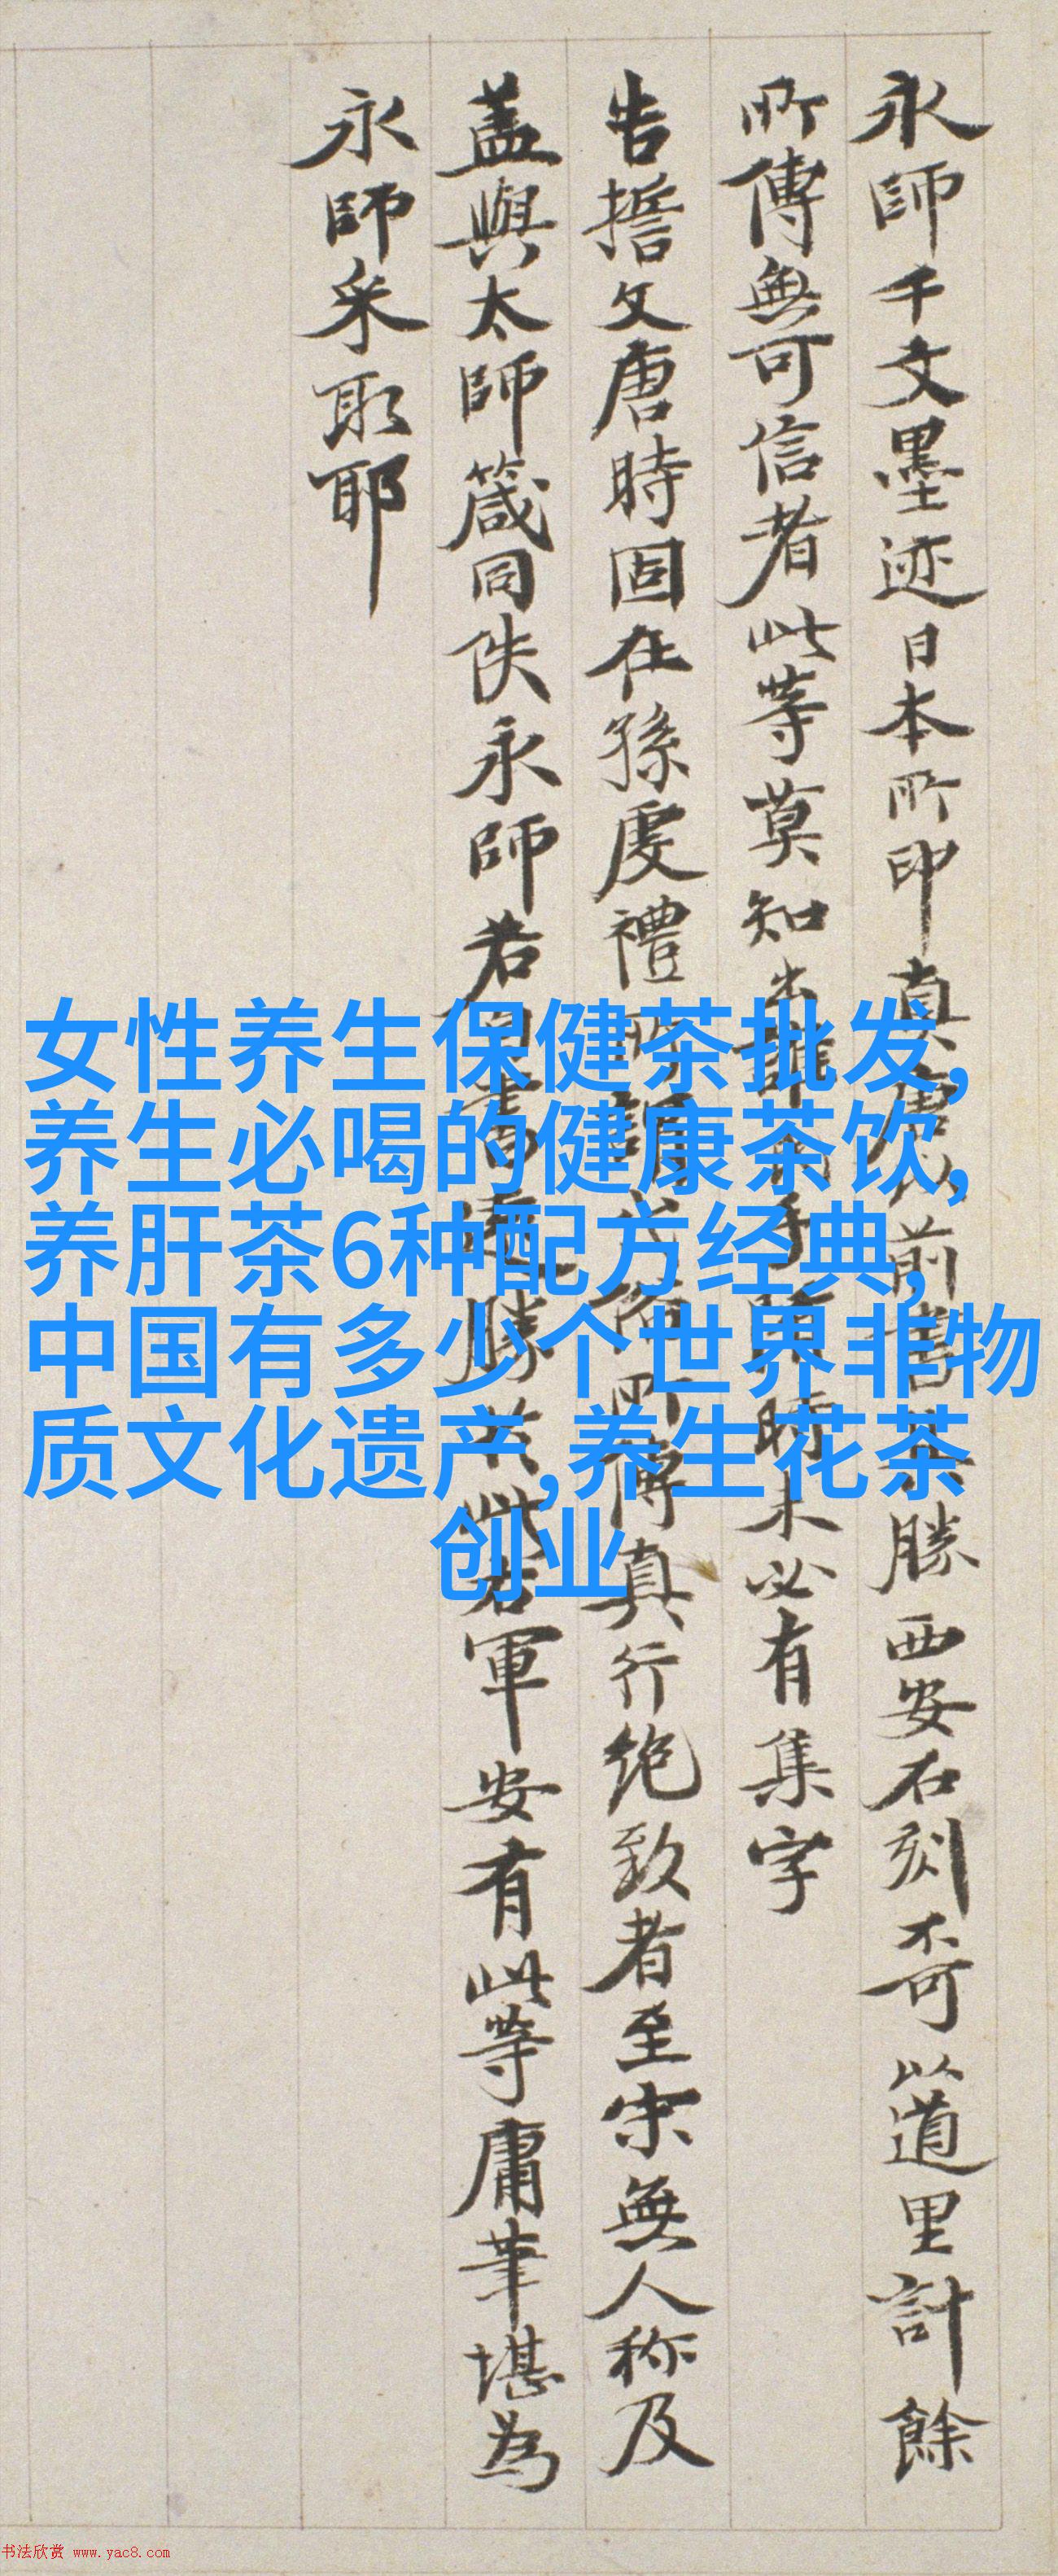 永師千文墨迹日本所印真唐以前書
勝西安石刻不可以道里計餘
所傳無可信者此等莫知出誰
手
時未必有集字
告擔文唐時固在孫虔禮
所傳真行绝致者至宋無人称及
盖與太師箴同佚永師若
書
勝
此右軍安有此等庸筆堪為
永師采取耶
女性养生保健茶批发,
养生必喝的健康茶饮,
养肝茶6种配方经典,
中国有多少个世界非物
质文化遗产,养生花茶
创业
书法欣赏 www.yac8.com